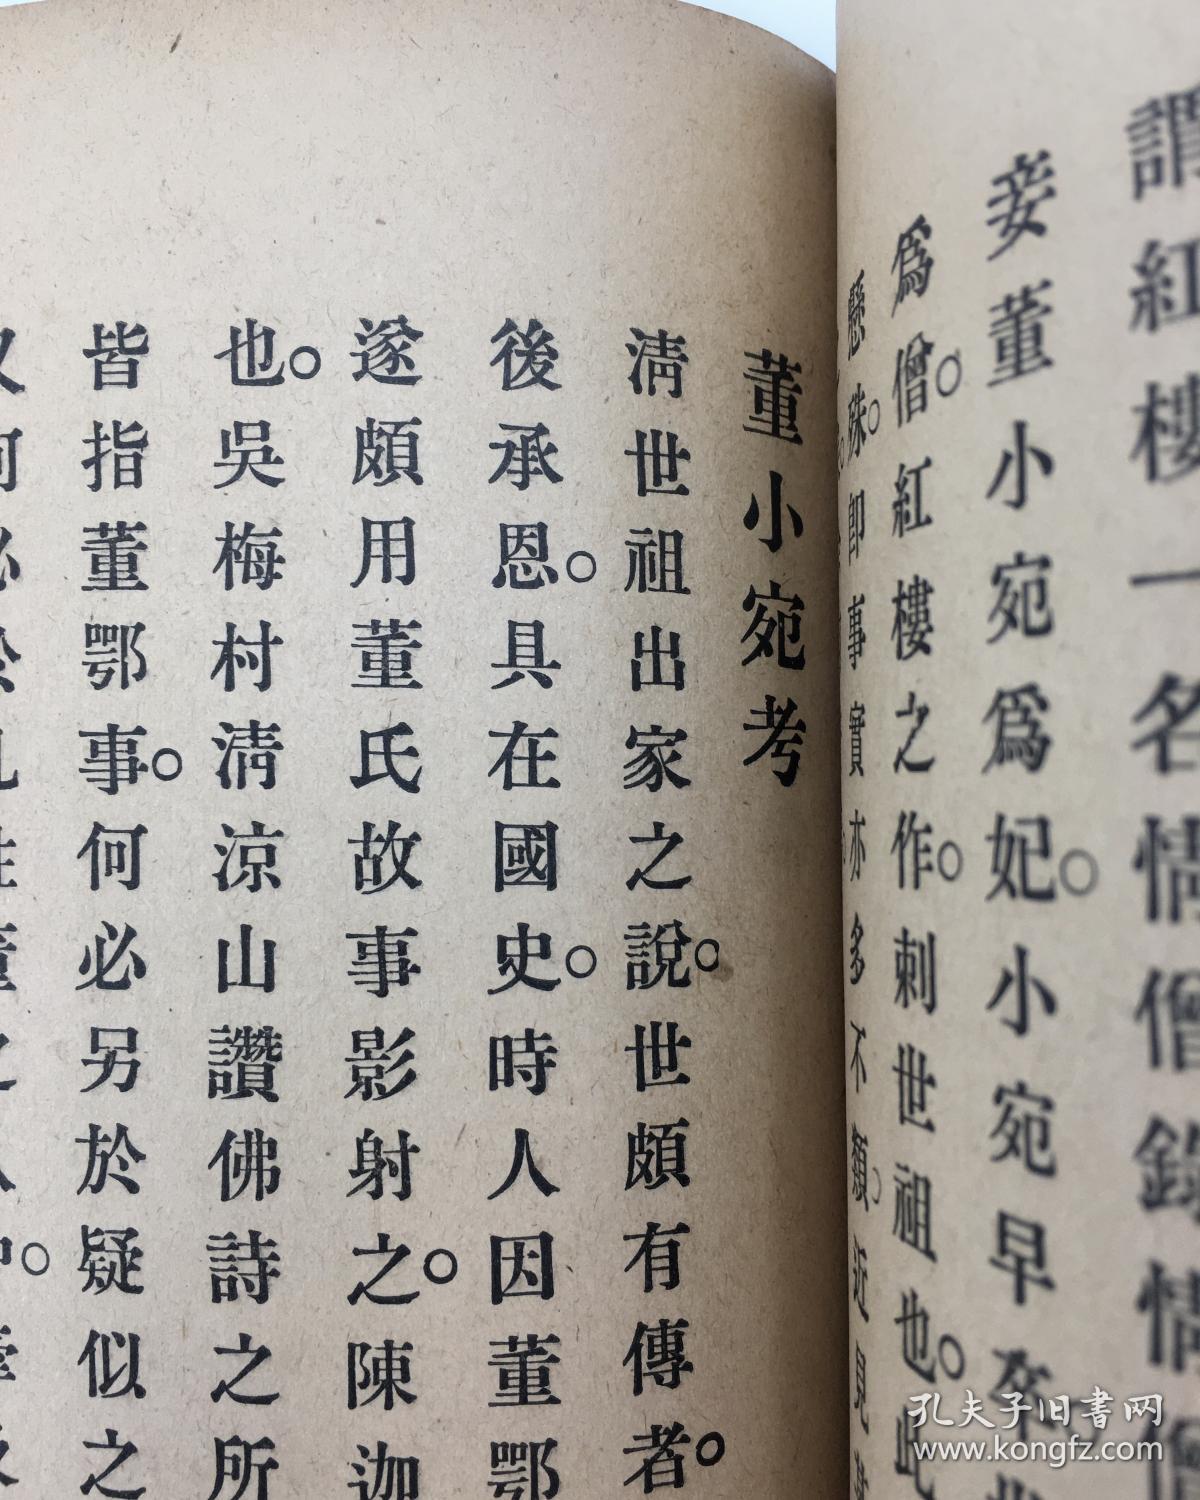 謂紅樓一名情僧錄情僧
妾董小宛爲妃。小宛早卒世
爲僧。紅樓之作。刺世祖也。此
懸殊。卽事實亦多不類。近見
董小宛考
淸世祖出家之說。世頗有傳者。
後承恩。具在國史。時人因董鄂
遂頗用董氏故事影射之。陳迦
也。吳梅村淸涼山讚佛詩之所
皆指董鄂事。何必另於疑似之
孔夫子旧书网
www.kongfz.com